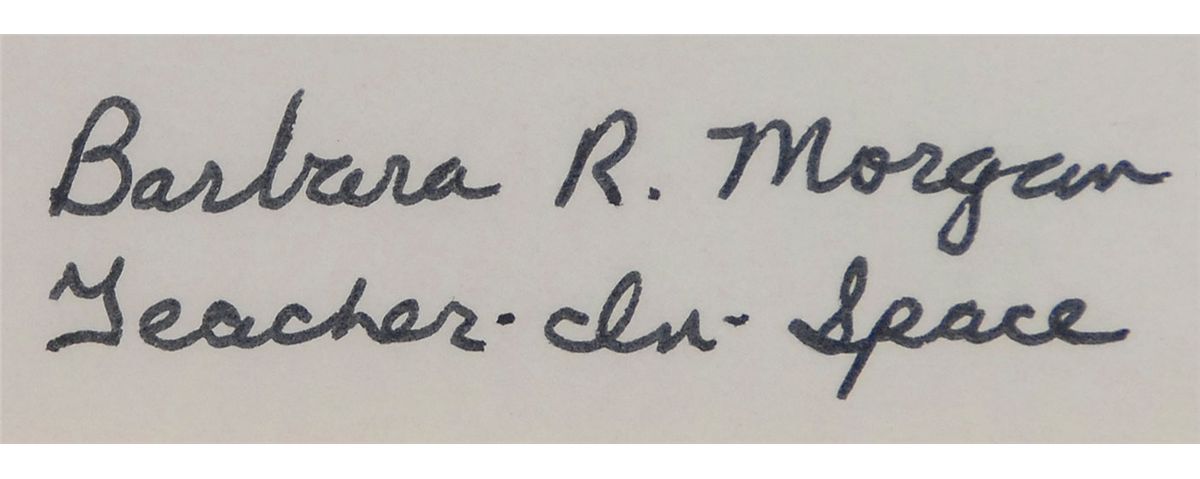 Barbara R. Morgan
Teacher-In-Space